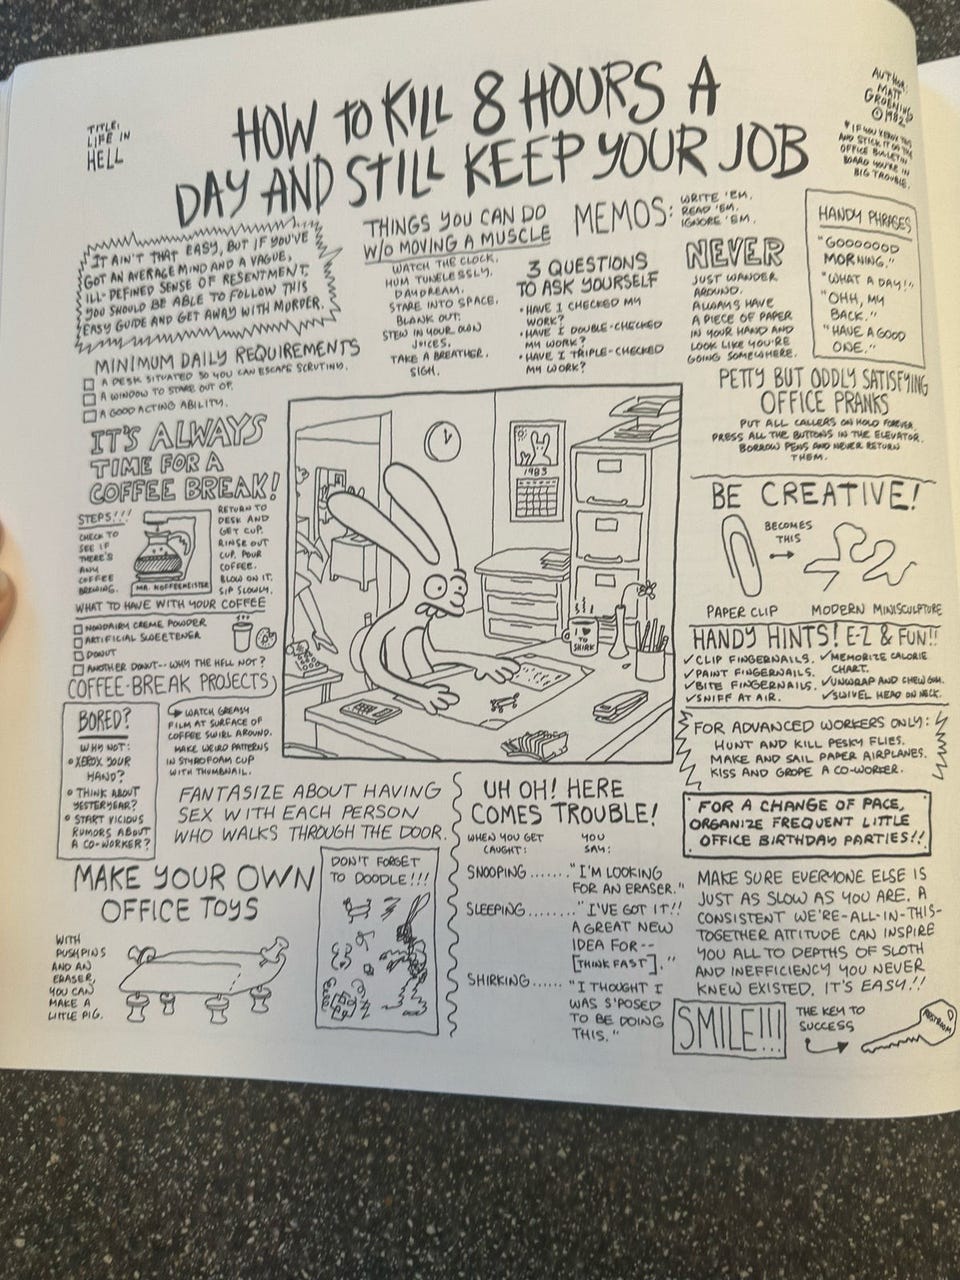 TITLE:
LIFE IN
HELL
HOW to KILL 8 HOURS A
DAY AND STILL KEEP YOUR JOB
AUTHOR:
MATT
GROENING
©1982
* IF YOU XEROX THIS
AND STICK IT ON THE
OFFICE BULLETIN
BOARD YOU'RE IN
BIG TROUBLE.
IT AIN'T THAT EASY, BUT IF YOU'VE
GOT AN AVERAGE MIND AND A VAGUE,
ILL-DEFINED SENSE OF RESENTMENT,
YOU SHOULD BE ABLE TO FOLLOW THIS
EASY GUIDE AND GET AWAY WITH MURDER.
MINIMUM DAILY REQUIREMENTS
A DESK SITUATED SO YOU CAN ESCAPE SCRUTINY.
A WINDOW TO STARE OUT OF.
A GOOD ACTING ABILITY.
THINGS YOU CAN DO
W/O MOVING A MUSCLE
WATCH THE CLOCK.
HUM TUNELESSLY.
DAYDREAM.
STARE INTO SPACE.
BLANK OUT.
STEW IN YOUR OWN
JUICES.
TAKE A BREATHER.
SIGH.
3 QUESTIONS
TO ASK YOURSELF
• HAVE I CHECKED MY
WORK?
• HAVE I DOUBLE-CHECKED
MY WORK?
• HAVE I TRIPLE-CHECKED
MY WORK?
MEMOS:
WRITE 'EM.
READ 'EM.
IGNORE 'EM.
NEVER
JUST WANDER
AROUND.
ALWAYS HAVE
A PIECE OF PAPER
IN YOUR HAND AND
LOOK LIKE YOU'RE
GOING SOMEWHERE.
HANDY PHRASES
"GOOOOOOD
MORNING."
"WHAT A DAY!"
"OHH, MY
BACK."
"HAVE A GOOD
ONE."
PETTY BUT ODDLY SATISFYING
OFFICE PRANKS
PUT ALL CALLERS ON HOLD FOREVER.
PRESS ALL THE BUTTONS IN THE ELEVATOR.
BORROW PENS AND NEVER RETURN
THEM.
IT'S ALWAYS
TIME FOR A
COFFEE BREAK!
STEPS!!!
CHECK TO
SEE IF
THERE'S
ANY
COFFEE
BREWING.
MR. KOFFEEMEISTER
RETURN TO
DESK AND
GET CUP.
RINSE OUT
CUP. POUR
COFFEE.
BLOW ON IT.
SIP SLOWLY.
WHAT TO HAVE WITH YOUR COFFEE
NONDAIRY CREME POWDER
ARTIFICIAL SWEETENER
DONUT
ANOTHER DONUT--WHY THE HELL NOT?
COFFEE-BREAK PROJECTS
WATCH GREASY
FILM AT SURFACE OF
COFFEE SWIRL AROUND.
MAKE WEIRD PATTERNS
IN STYROFOAM CUP
WITH THUMBNAIL.
BORED?
WHY NOT:
• XEROX YOUR
HAND?
• THINK ABOUT
YESTERYEAR?
• START VICIOUS
RUMORS ABOUT
A CO-WORKER?
1983
I
♥ TO
SHIRK
BE CREATIVE!
BECOMES
THIS
PAPER CLIP
MODERN MINISCULPTURE
HANDY HINTS! E-Z & FUN!!
✓ CLIP FINGERNAILS.
✓ PAINT FINGERNAILS.
✓ BITE FINGERNAILS.
✓ SNIFF AT AIR.
✓ MEMORIZE CALORIE
CHART.
✓ UNWRAP AND CHEW GUM.
✓ SWIVEL HEAD ON NECK.
FOR ADVANCED WORKERS ONLY:
HUNT AND KILL PESKY FLIES.
MAKE AND SAIL PAPER AIRPLANES.
KISS AND GROPE A CO-WORKER.
FANTASIZE ABOUT HAVING
SEX WITH EACH PERSON
WHO WALKS THROUGH THE DOOR.
UH OH! HERE
COMES TROUBLE!
WHEN YOU GET
CAUGHT:
YOU
SAY:
SNOOPING......."I'M LOOKING
FOR AN ERASER."
SLEEPING........"I'VE GOT IT!!
A GREAT NEW
IDEA FOR--
[THINK FAST]."
SHIRKING......"I THOUGHT I
WAS S'POSED
TO BE DOING
THIS."
FOR A CHANGE OF PACE,
ORGANIZE FREQUENT LITTLE
OFFICE BIRTHDAY PARTIES!!
MAKE YOUR OWN
OFFICE TOYS
WITH
PUSHPINS
AND AN
ERASER,
YOU CAN
MAKE A
LITTLE PIG.
DON'T FORGET
TO DOODLE!!!
MAKE SURE EVERYONE ELSE IS
JUST AS SLOW AS YOU ARE. A
CONSISTENT WE'RE-ALL-IN-THIS-
TOGETHER ATTITUDE CAN INSPIRE
YOU ALL TO DEPTHS OF SLOTH
AND INEFFICIENCY YOU NEVER
KNEW EXISTED. IT'S EASY!!
SMILE!!!
THE KEY TO
SUCCESS
RESTROOM